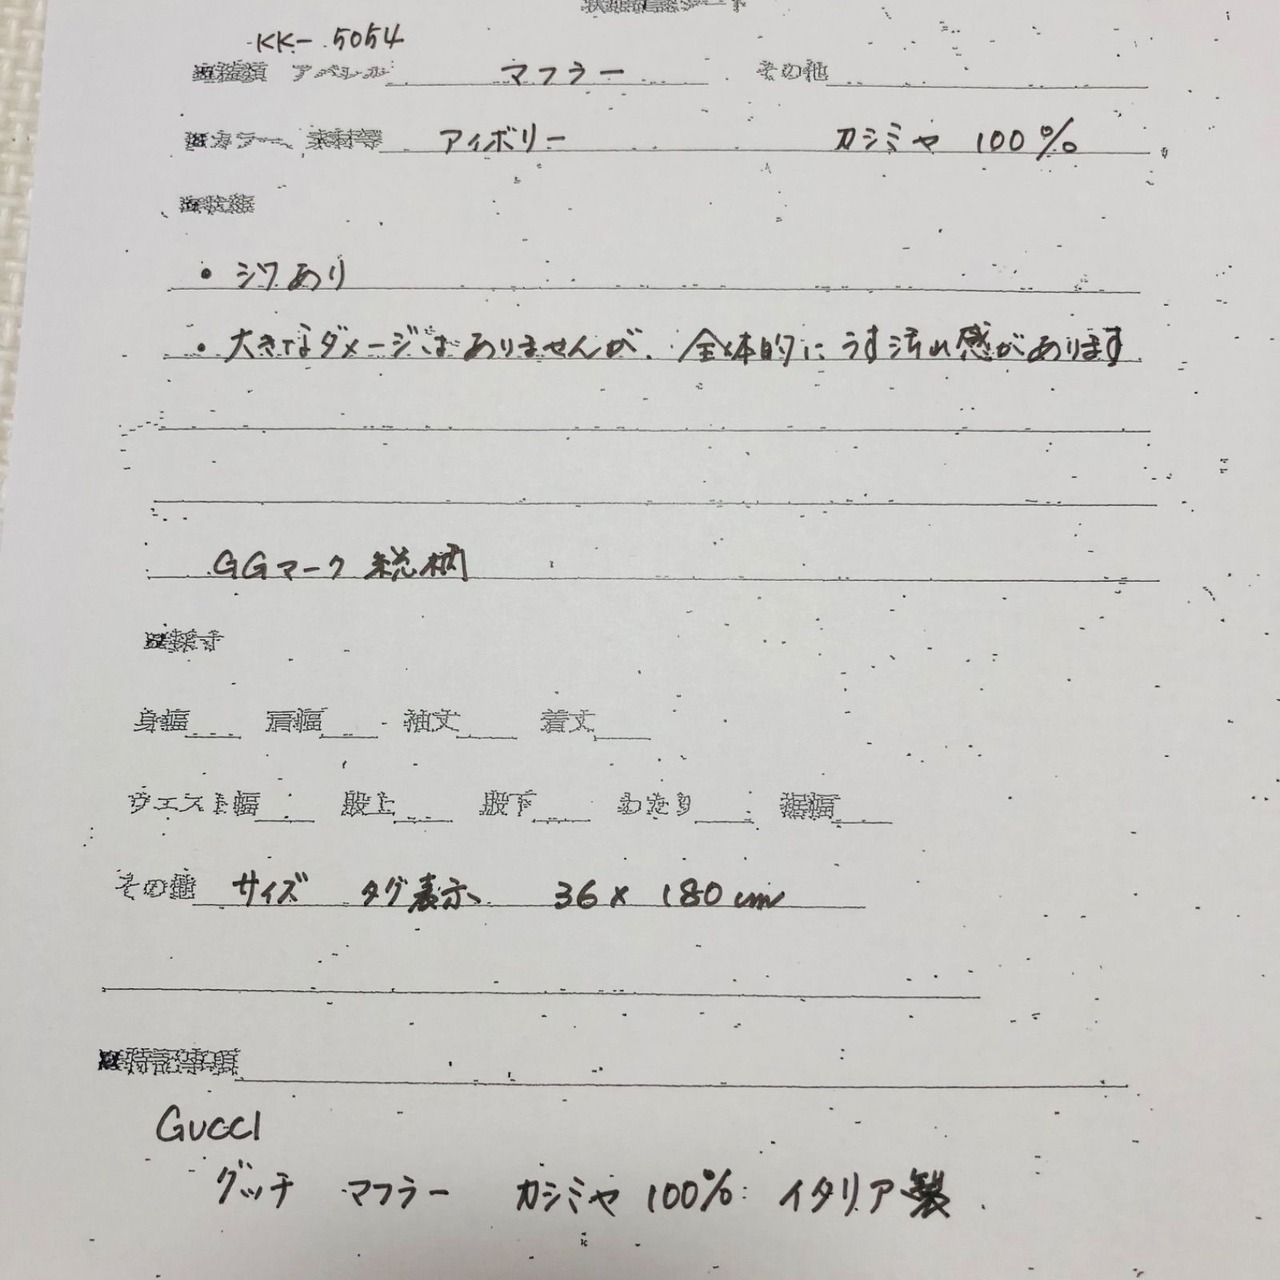 KK- 5054
■種類 アパレル マフラー その他
■カラー、素材等 アイボリー カシミヤ 100%
■状態
・シワあり
・大きなダメージはありませんが、全体的にうす汚れ感があります
GGマーク 総柄
■採寸
身幅 肩幅 袖丈 着丈
ウエスト幅 股上 股下 わたり 裾幅
その他 サイズ タグ表示 36 x 180 cm
■特記事項
GUCCI
グッチ マフラー カシミヤ 100% イタリア製